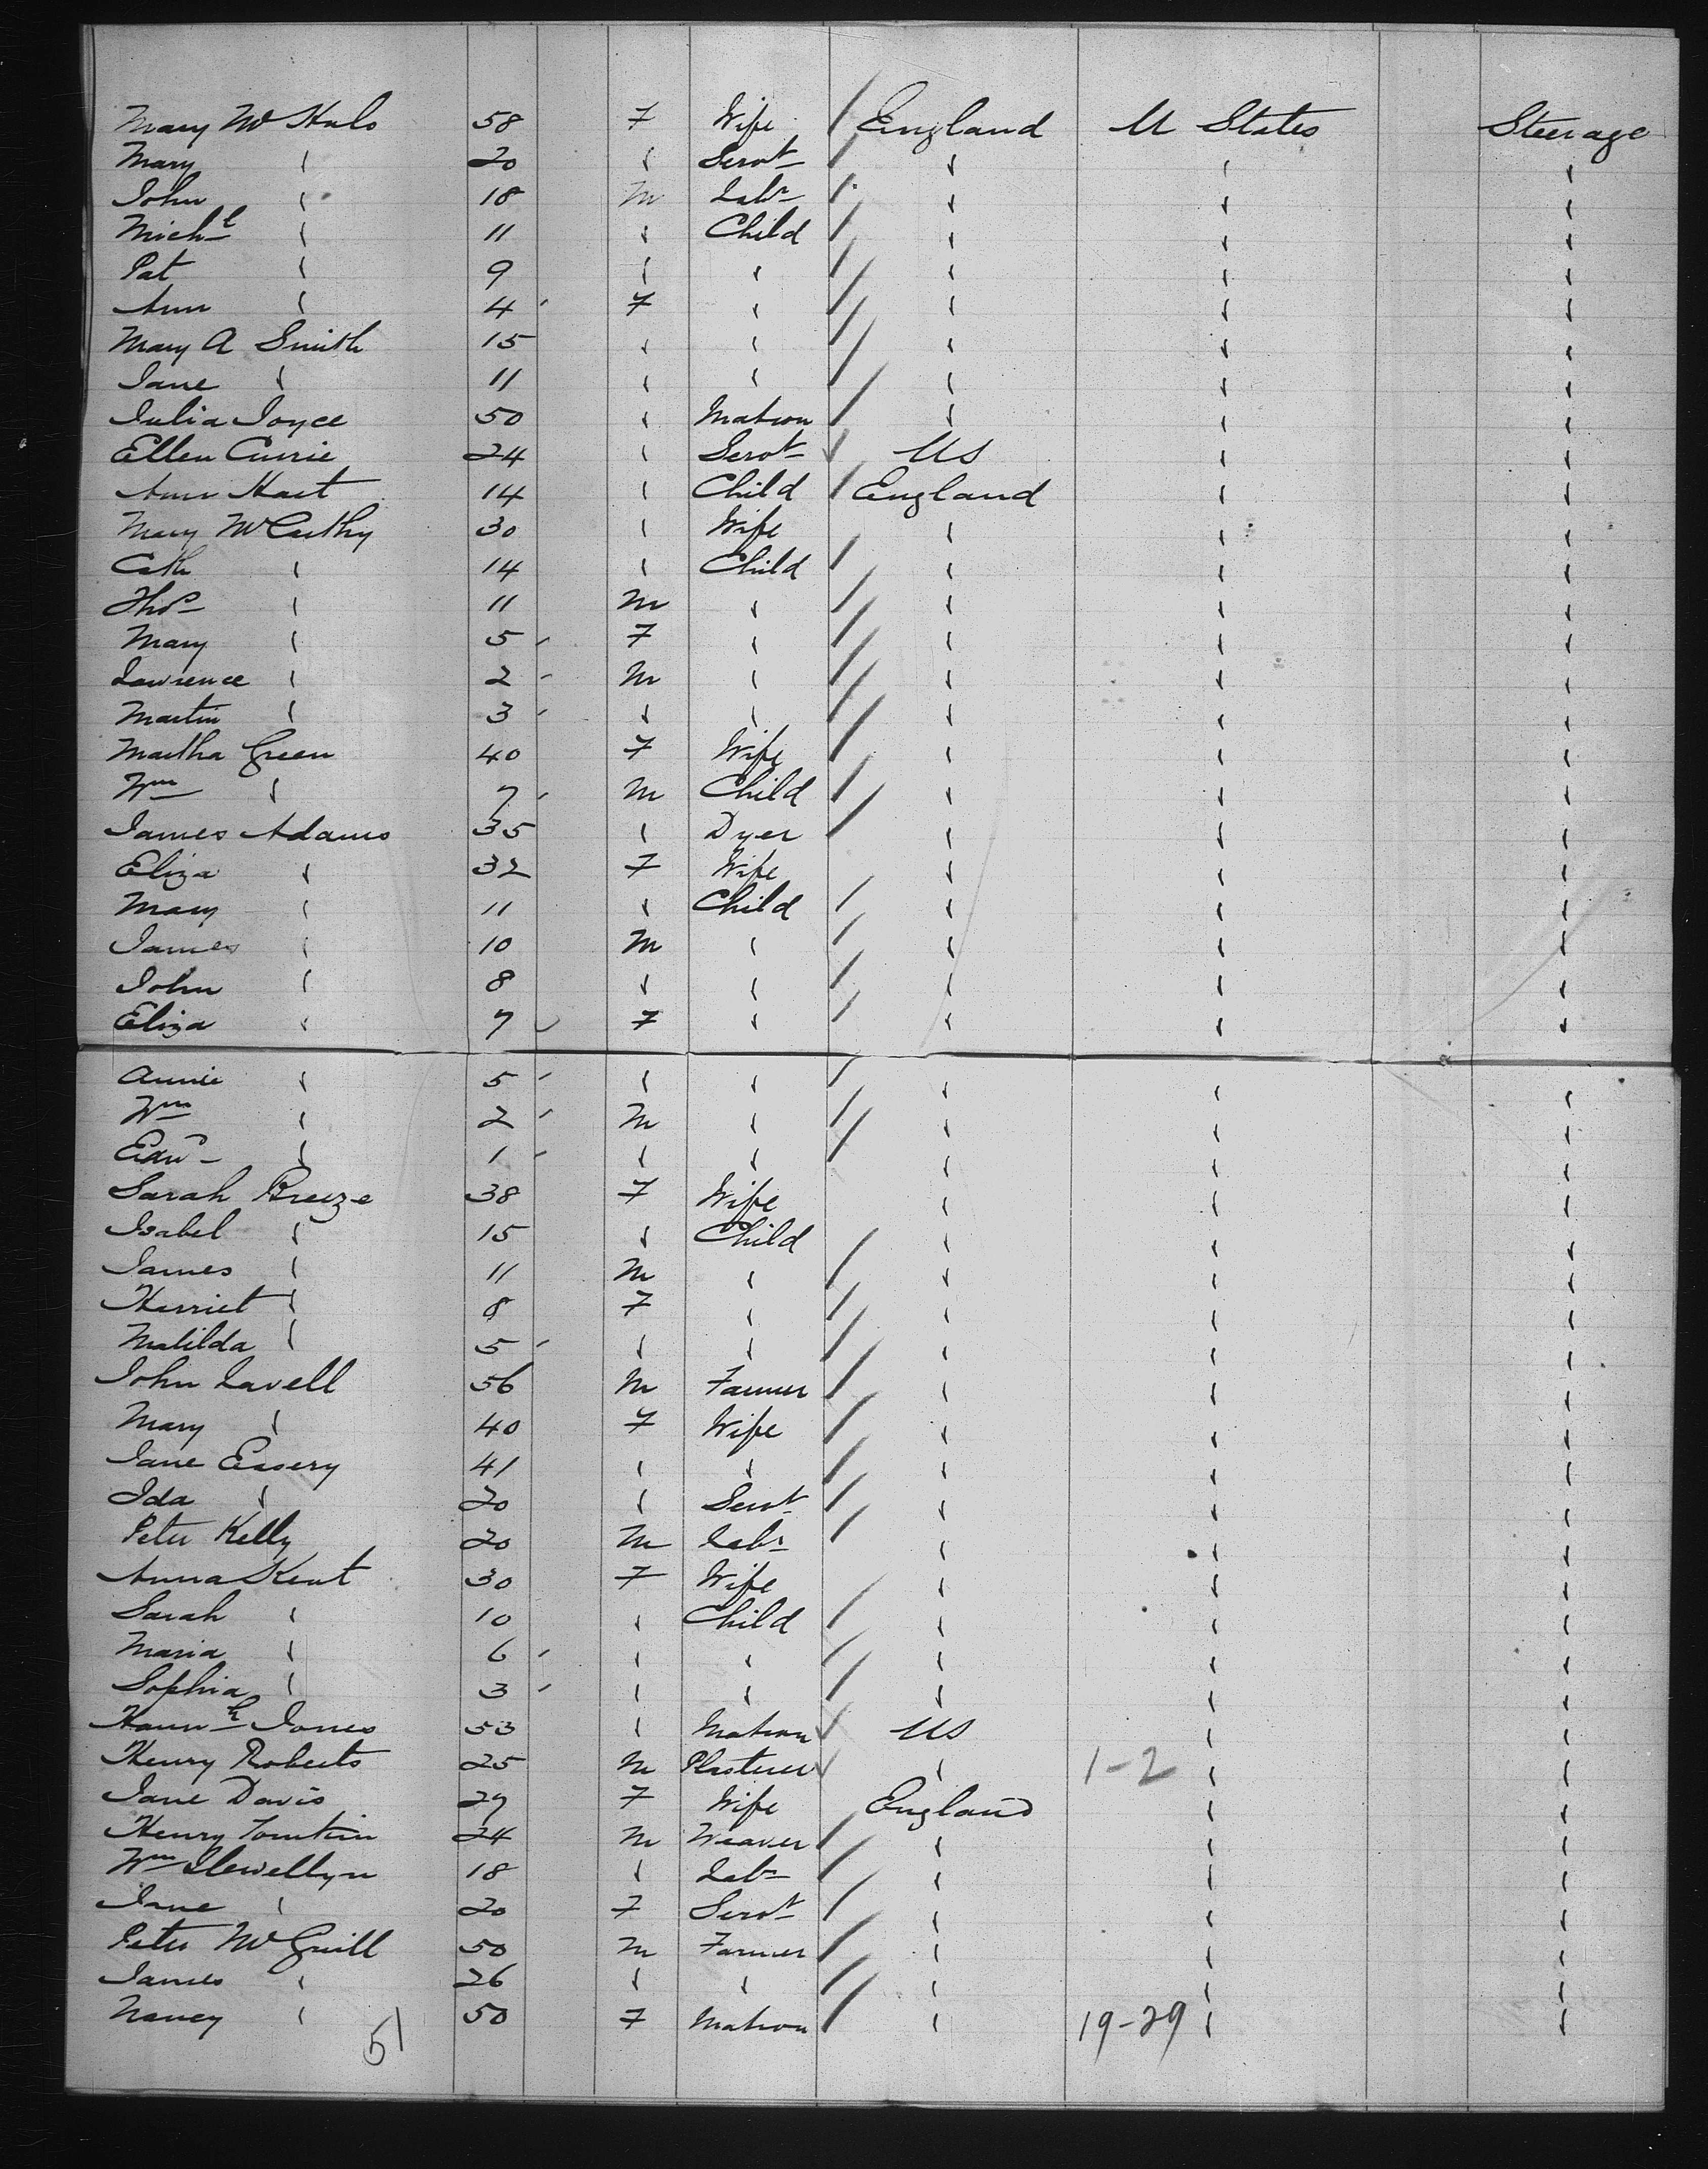 Mary Mc Hulo 58 F Wife / England U States Steerage
Mary " 20 " Servt / " " "
John " 18 M Labr / " " "
Michl " 11 " Child / " " "
Pat " 9 " " / " " "
Ann " 4 F " / " " "
Mary A Smith 15 " " / " " "
Jane " 11 " " / " " "
Julia Joyce 50 " Matron / " " "
Ellen Currie 24 " Servt ✓ US " "
Ann Hart 14 " Child / England " "
Mary McCarthy 30 " Wife " " "
Cath " 14 " Child / " " "
Thos " 11 M " / " " "
Mary " 5 F " / " " "
Lawrence " 2 M " / " " "
Martin " 3 " " / " " "
Martha Green 40 F Wife / " " "
Wm " 7 M Child / " " "
James Adams 35 " Dyer / " " "
Eliza " 32 F Wife " " "
Mary " 11 " Child / " " "
James " 10 M " / " " "
John " 8 " " / " " "
Eliza " 7 F " / " " "
Annie " 5 " " / " " "
Wm " 2 M " / " " "
Edwd " 1 " " / " " "
Sarah Breeze 38 F Wife " " "
Isabel " 15 " Child / " " "
James " 11 M " / " " "
Harriet " 8 F " / " " "
Matilda " 5 " " / " " "
John Lavell 56 M Farmer / " " "
Mary " 40 F Wife / " " "
Jane Essery 41 " " / " " "
Ida " 20 " Servt / " " "
Peter Kelly 20 M Labr / " " "
Anna Kent 30 F Wife " " "
Sarah " 10 " Child / " " "
Maria " 6 " " / " " "
Sophia " 3 " " / " " "
Hannh Jones 53 " Matron ✓ US " "
Henry Roberts 25 M Plasterer ✓ " 1-2 " "
Jane Davis 27 F Wife England " "
Henry Tomkin 24 M Weaver / " " "
Wm Llewellyn 18 " Labr / " " "
Jane " 20 F Servt / " " "
Peter McGuill 50 M Farmer / " " "
James " 26 " " / " " "
Nancy " 50 F Matron / " 19-29 " "
51